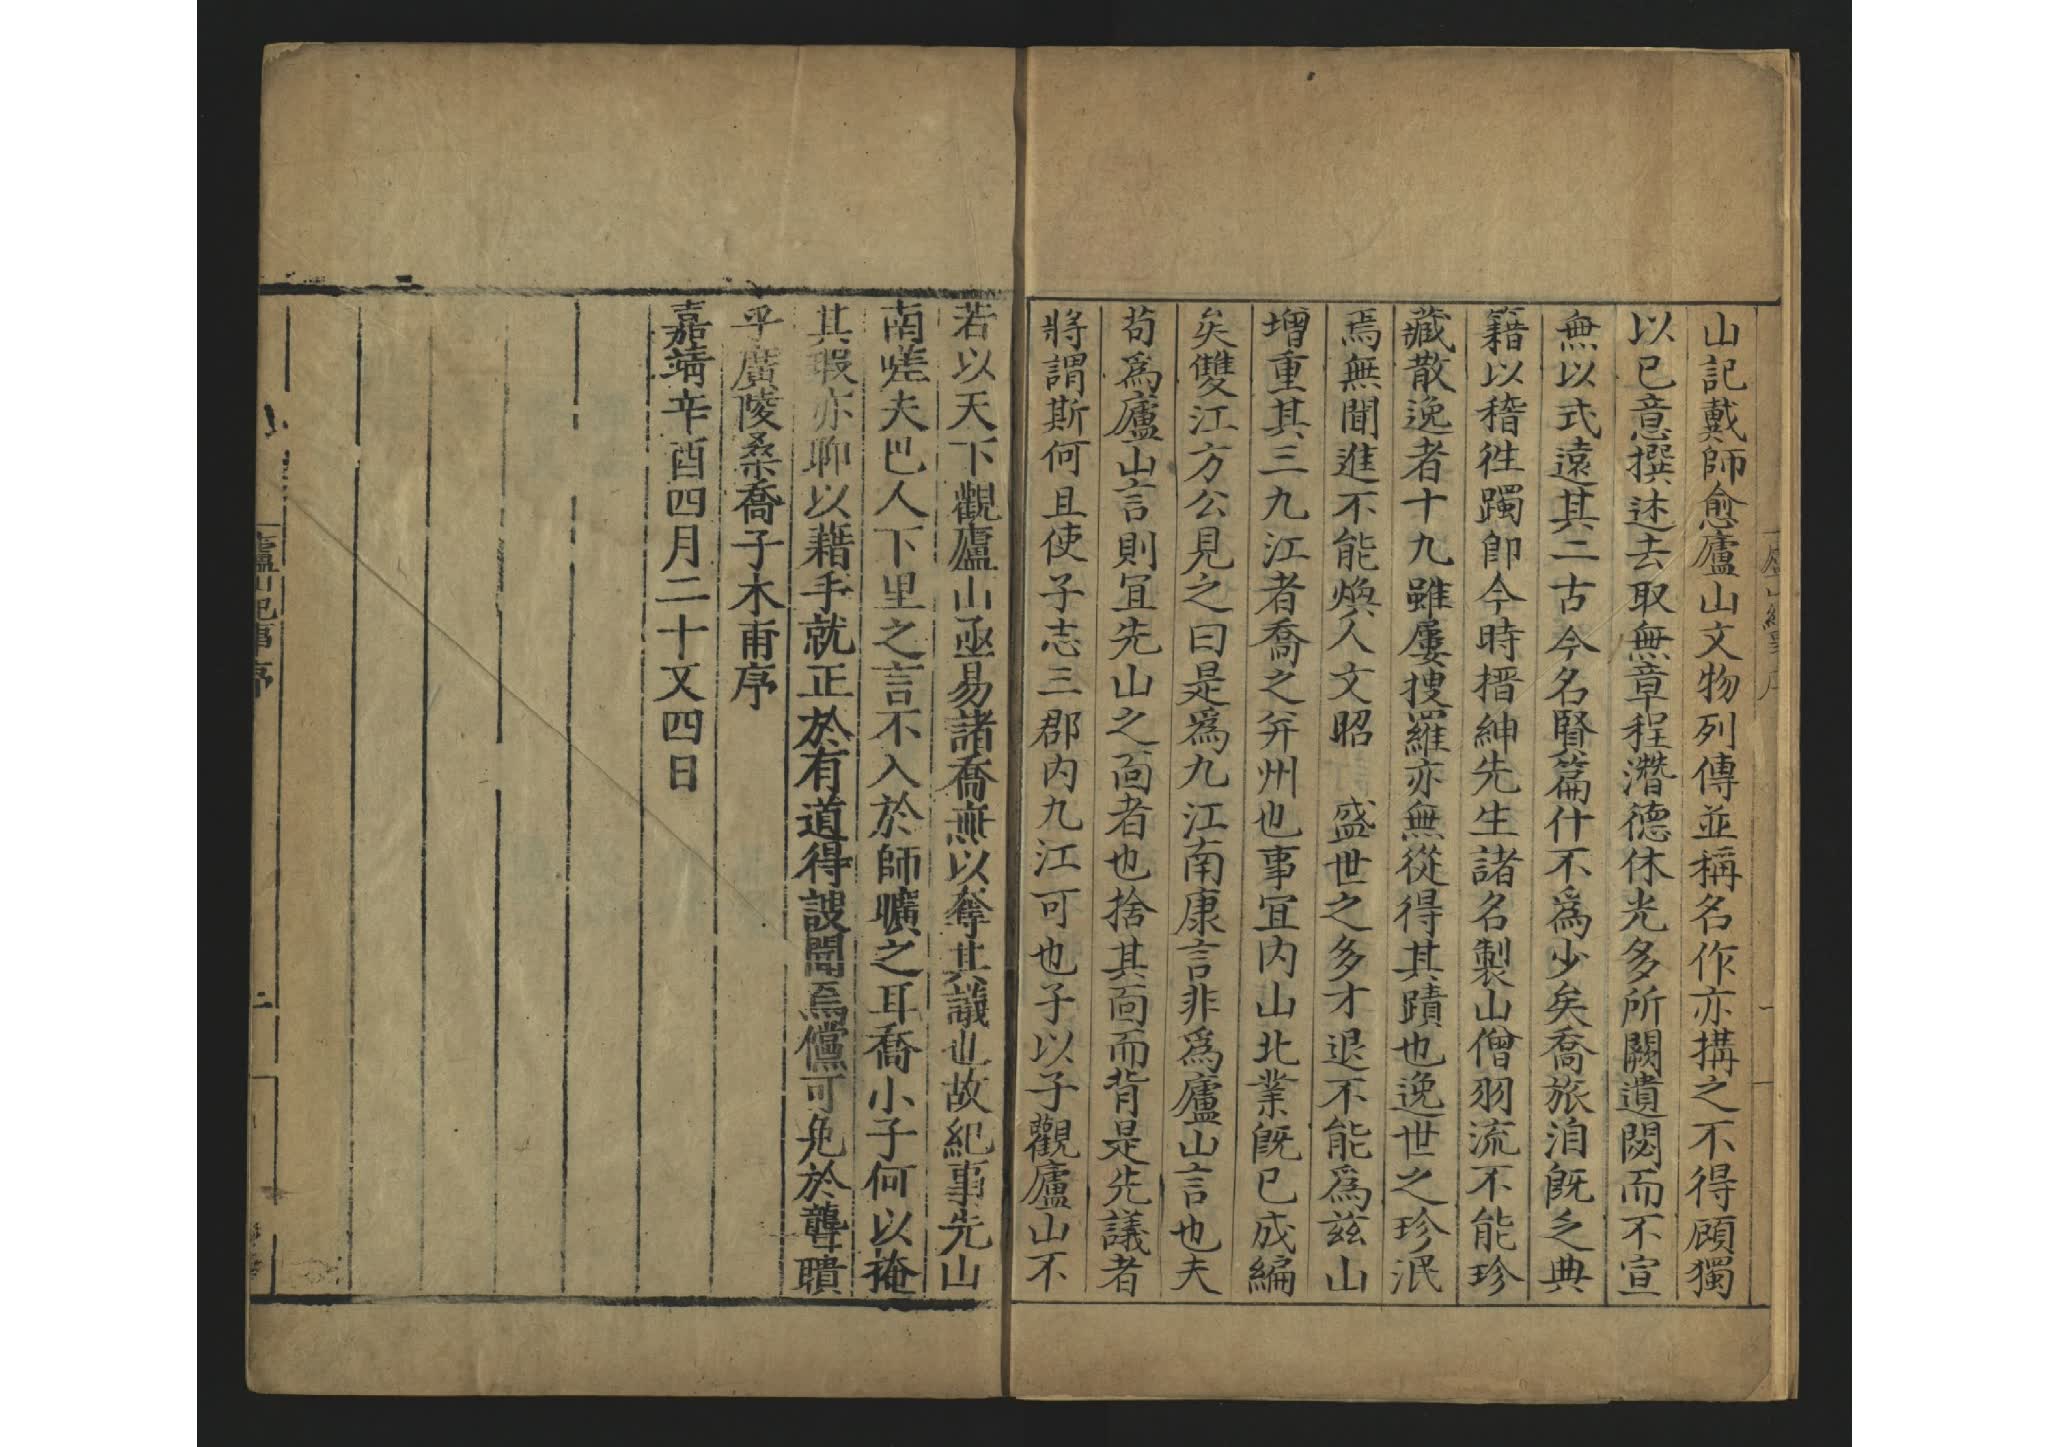 山記戴師愈廬山文物列傳並稱名作亦搆之不得顧獨
以已意撰述去取無章程潛德休光多所闕遺閟而不宣
無以式遠其二古今名賢篇什不爲少矣喬旅泊既乏典
籍以稽徃躅卽今時搢紳先生諸名製山僧羽流不能珍
藏散逸者十九雖屢搜羅亦無從得其蹟也逸世之珍泯
焉無聞進不能煥人文昭 盛世之多才退不能爲兹山
增重其三九江者喬之并州也事宜内山北業既已成編
矣雙江方公見之曰是爲九江南康言非爲廬山言也夫
苟爲廬山言則宜先山之面者也捨其面而背是先議者
將謂斯何且使子志三郡内九江可也子以子觀廬山不
若以天下觀廬山亟易諸喬無以奪其議也故紀事先山
南嗟夫巴人下里之言不入於師曠之耳喬小子何以掩
其瑕亦聊以藉手就正於有道得謏聞焉儻可免於聾聵
乎廣陵桑喬子木甫序
嘉靖辛酉四月二十又四日
廬山紀事序
二